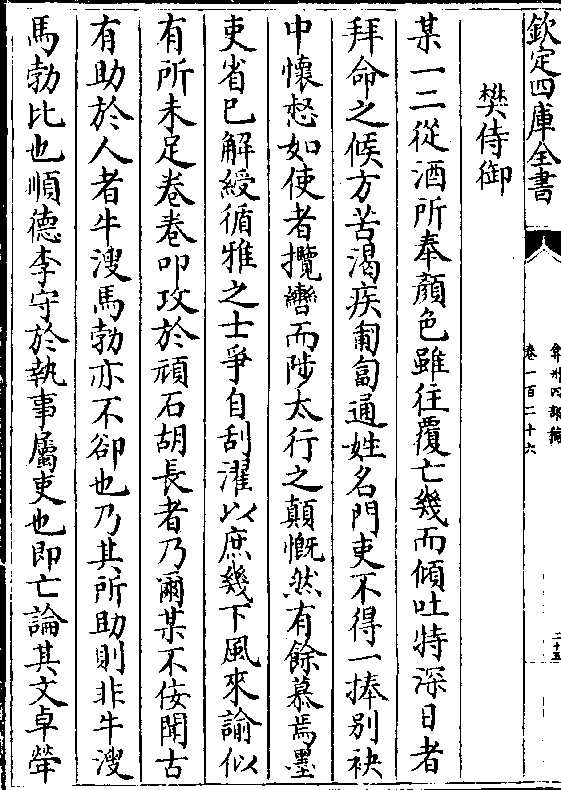 欽定四庫全書
弇州四部稿
卷一百二十六
二十五
樊侍御
某一二從酒所奉顏色雖往覆亡幾而傾吐特深日者
拜命之候方苦渴疾匍匐通姓名門吏不得一捧別袂
中懷惄如使者攬轡而陟太行之顛慨然有餘慕焉墨
吏省已解綬循雅之士爭自刮濯以庶幾下風來諭似
有所未足卷卷叩攻於頑石胡長者乃爾某不佞聞古
有助於人者牛溲馬勃亦不卻也乃其所助則非牛溲
馬勃比也順德李守於執事屬吏也即亡論其文卓犖